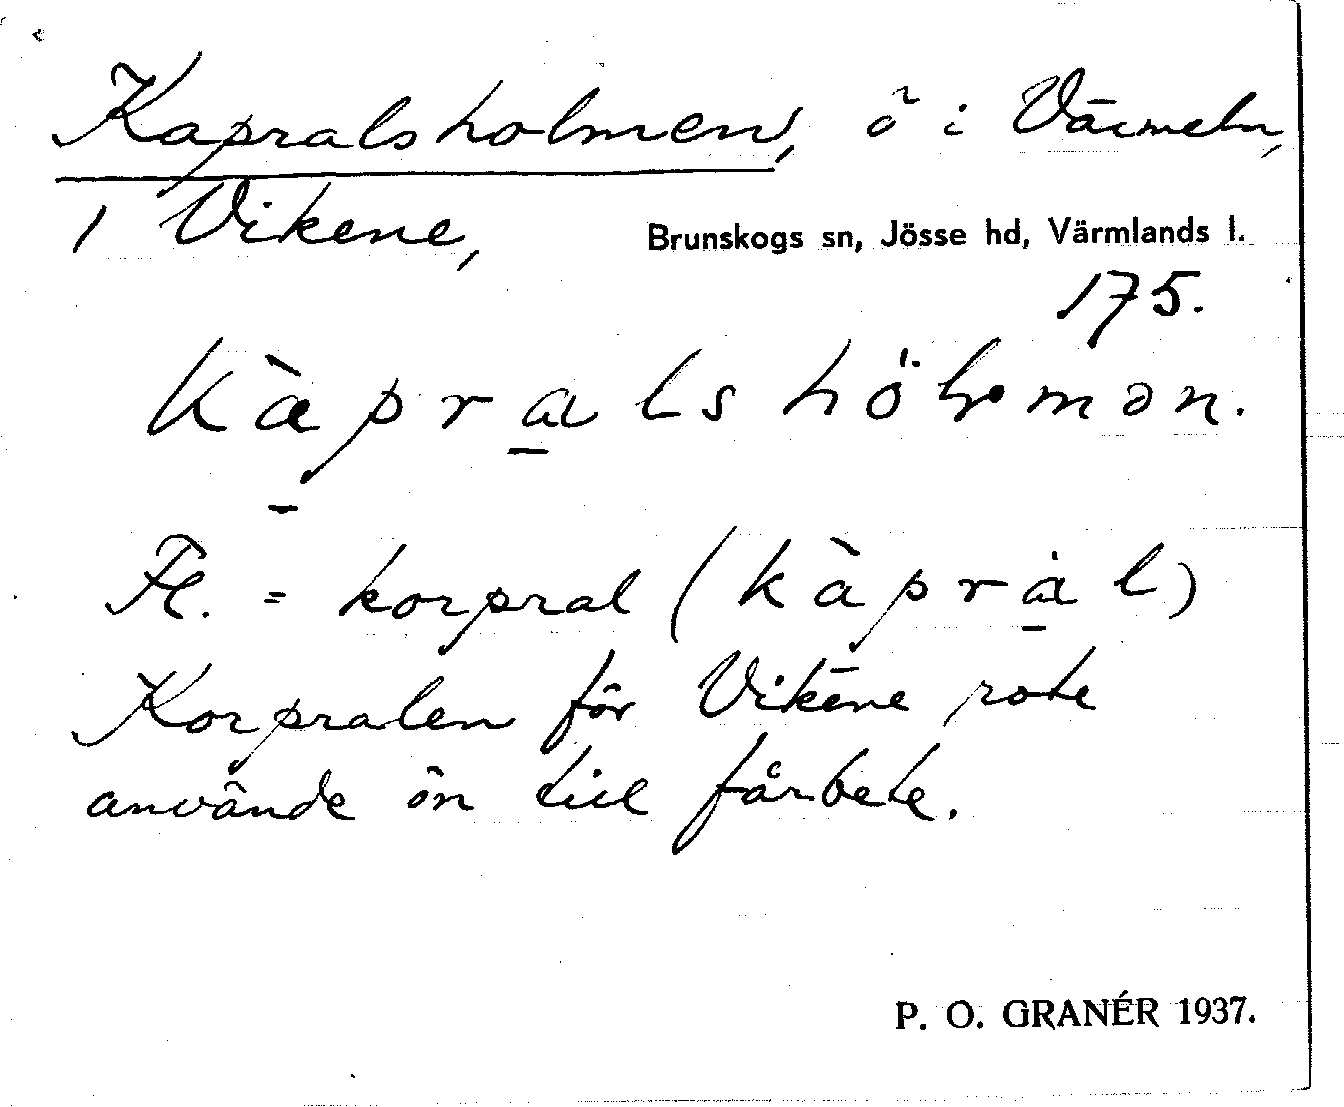 Kapralsholmen, ö i Värmeln,
1 Vikene,
Brunskogs sn, Jösse hd, Värmlands l.
175.
kàpralshö̀lmən.
Fl. = korpral (kàpràl)
Korpralen för Vikene rote
använde ön till fårbete.
P. O. GRANÉR 1937.